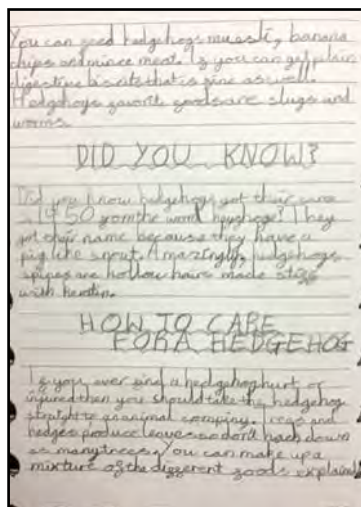 You can feed hedgehogs muesli, banana
chips and mince meat. If you can get plain
digestive biscuits that is fine as well.
Hedgehogs favorite foods are slugs and
worms.
DID YOU KNOW?
Did you know hedgehogs got their name
in 1450 from the word heyghoge? They
got their name because they have a
pig like snout. Amazingly, hedgehogs
spines are hollow hairs made stiff
with keratin.
HOW TO CARE
FOR A HEDGEHOG
If you ever find a hedgehog hurt or
injured then you should take the hedgehog
straight to an animal company. Trees and
hedges produce leaves so don't hack down
as many trees. You can make up a
mixture of the different foods explained